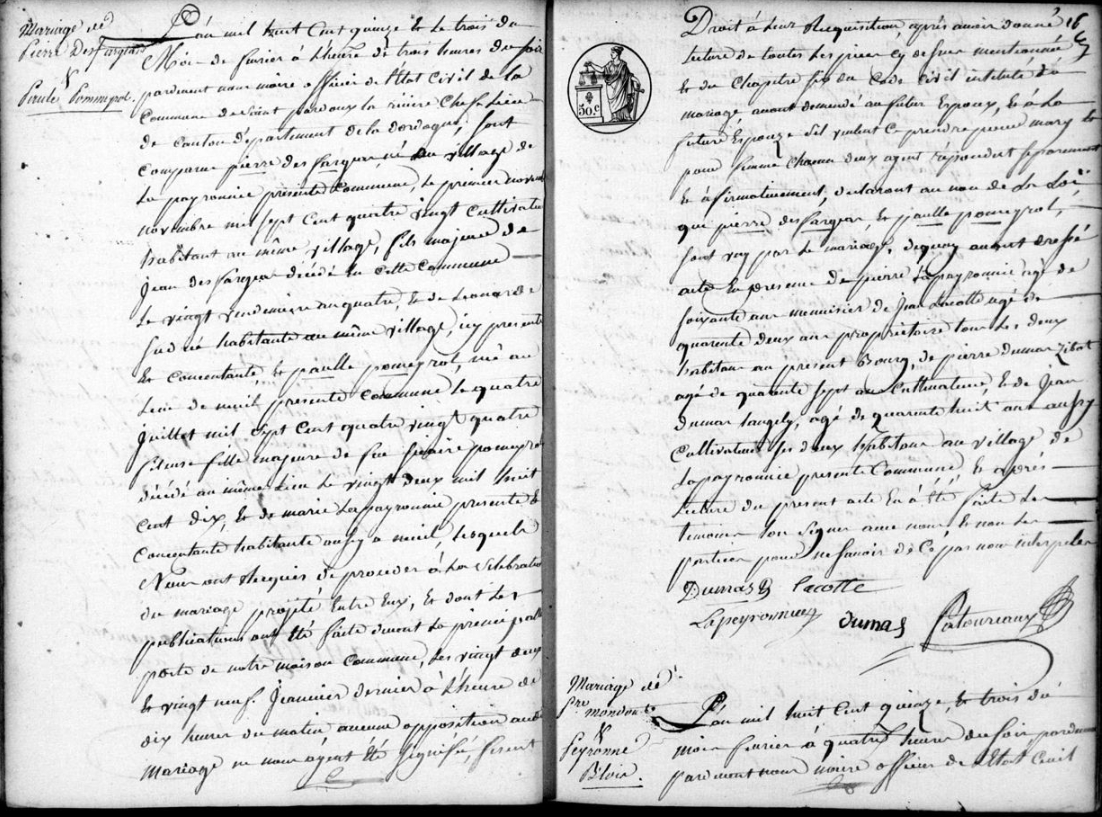 Mariage de
Pierre Desfarges
&
Paule Pommeyrol.
L'an mil huit Cent quinze & le trois du
Mois de fevrier à l'heure de trois heures du soir
pardevant nous maire officier de l'état Civil de la
Commune de Saint pardoux la riviere Chef Lieu
de canton departement de la dordogne, sont
comparus pierre desfarges né au village de
La payronnie presente Commune, Le premier
novembre mil sept Cent quatre vingt Cultivateur
habitant au même village, fils majeur de
Jean desfarges décédé en cette Commune
Le vingt vendemiaire an quatre, & de Leonarde
habitante au même village, icy presente
& Concentante, & paulle pomeyrol, née au
Lieu de presente Commune le quatre
Juillet mil sept Cent quatre vingt quatre
fileuse fille majeure de feu pomeyrol
décédé au même Lieu Le vingt deux mil huit
Cent dix, & de marie Lapeyronnie presente &
Concentante habitante aussy a lesquels
Nous ont Requis de proceder à La Celebration
du mariage projeté Entre Eux, & dont Les
publications ont été faites devant La principalle
porte de notre maison Commune, Les vingt deux
& vingt neuf Janvier dernier à L'heure de
dix heures du matin aucune opposition audit
Mariage ne nous ayant été Signifié, fesant
16
Droit à leur Requisition après avoir donné
Lecture de toutes Les pieces cy dessus mentionnée
& du Chapitre six du Code Civil intitulé du
mariage avons demandé au futur Epoux, & à La
future Epouze s'il veulent Ce prendre pour mary &
pour femme Chacun deux ayant répondut Separement
& afirmativement, declarons au nom de La Loi
que pierre desfarges & paulle pomeyrol,
sont uny par Le mariage, dequoy avons dressé
acte En presence de pierre Lapeyronnie agé de
soixante ans menuisier de Jean Lacotte agé de
quarente deux ans proprietaire tous Les deux
habitans au present Bourg de pierre dumas
agé de quarente sept ans Cultivateur, & de Jean
dumas agé de quarente huit ans aussy
Cultivateur Les deux habitans au village de
Lapeyronnie presente Commune, & après
Lecture du present acte En à été faite Les
temoins ont Signer avec nous & non Les
parties pour ne savoir de Ce par nous interpelés
Dumas Lacotte
Lapeyronnie dumas
50.c
Mariage de
&
Peyronne
Blois.
L'an mil huit Cent quinze, & trois du
mois fevrier à quatre heures du soir
pardevant nous maire officier de L'Etat Civil